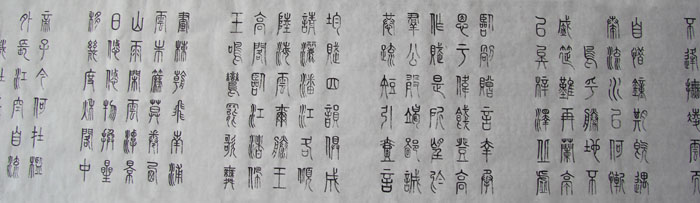 不逢撫凌雲而
自惜鍾期既遇
奏流水以何慚
烏乎勝地不
盛筵難再蘭亭
已矣梓澤丘墟
臨別贈言幸承
恩于偉餞登高
作賦是所望於
群公敢竭鄙誠
恭疏短引壹言
均賦四韻俱成
請灑潘江各傾
陸海云爾滕王
高閣臨江渚佩
玉鳴鸞罷歌舞
畫棟朝飛南浦
雲朱簾莫卷西
山雨閑雲潭景
日悠悠物換星
移幾度秋閣中
帝子今何在檻
外長江空自流